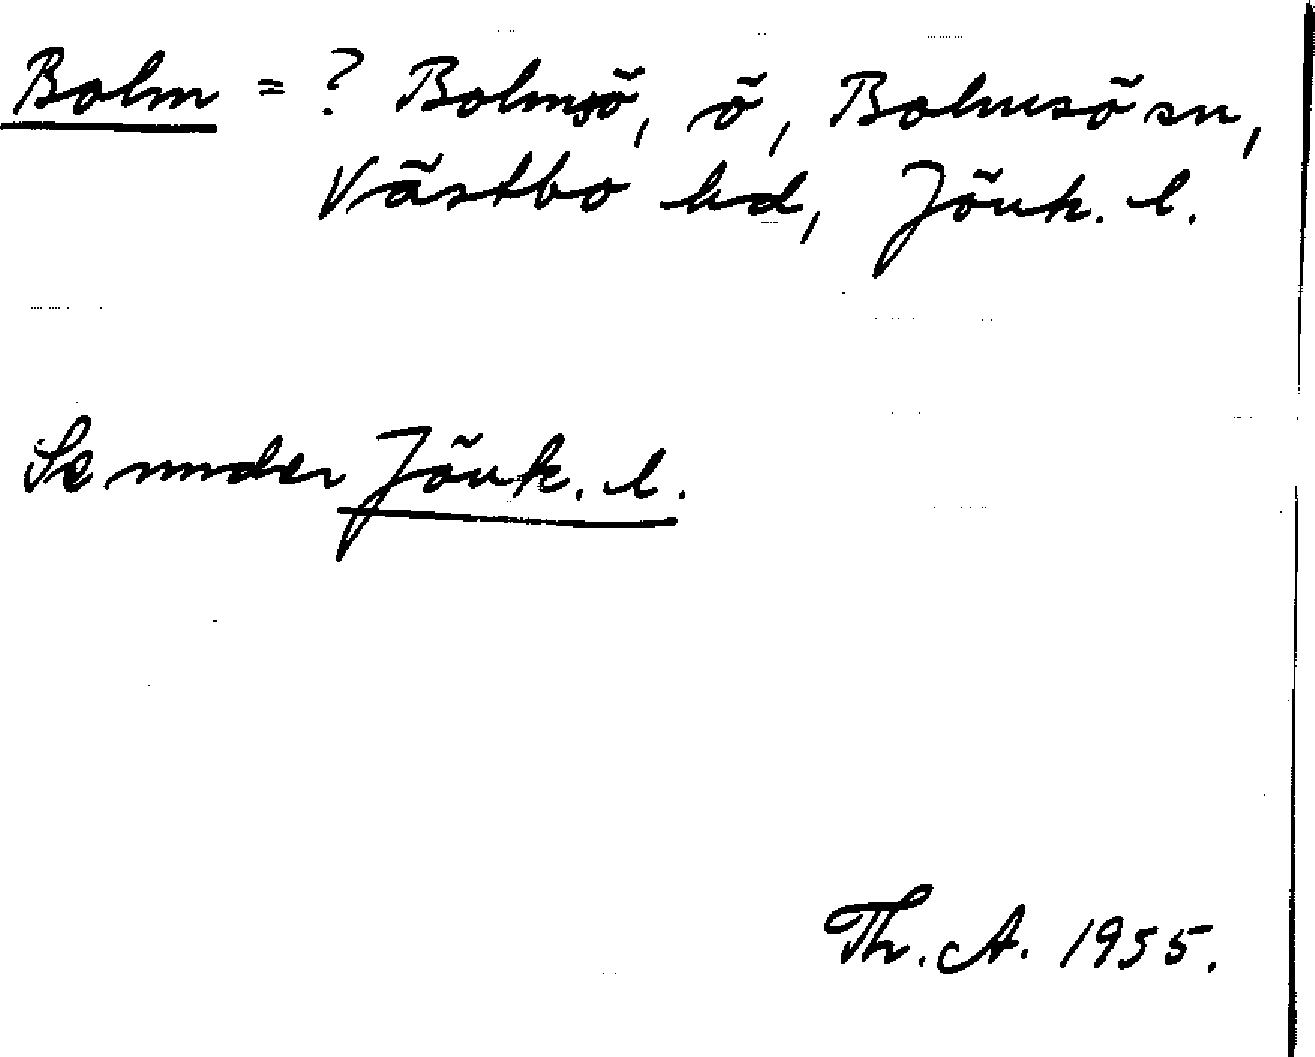 Bolm = ? Bolmsö, ö, Bolmsö sn,
Västbo hd, Jönk. l.
Se under Jönk. l.
Th. A. 1955.